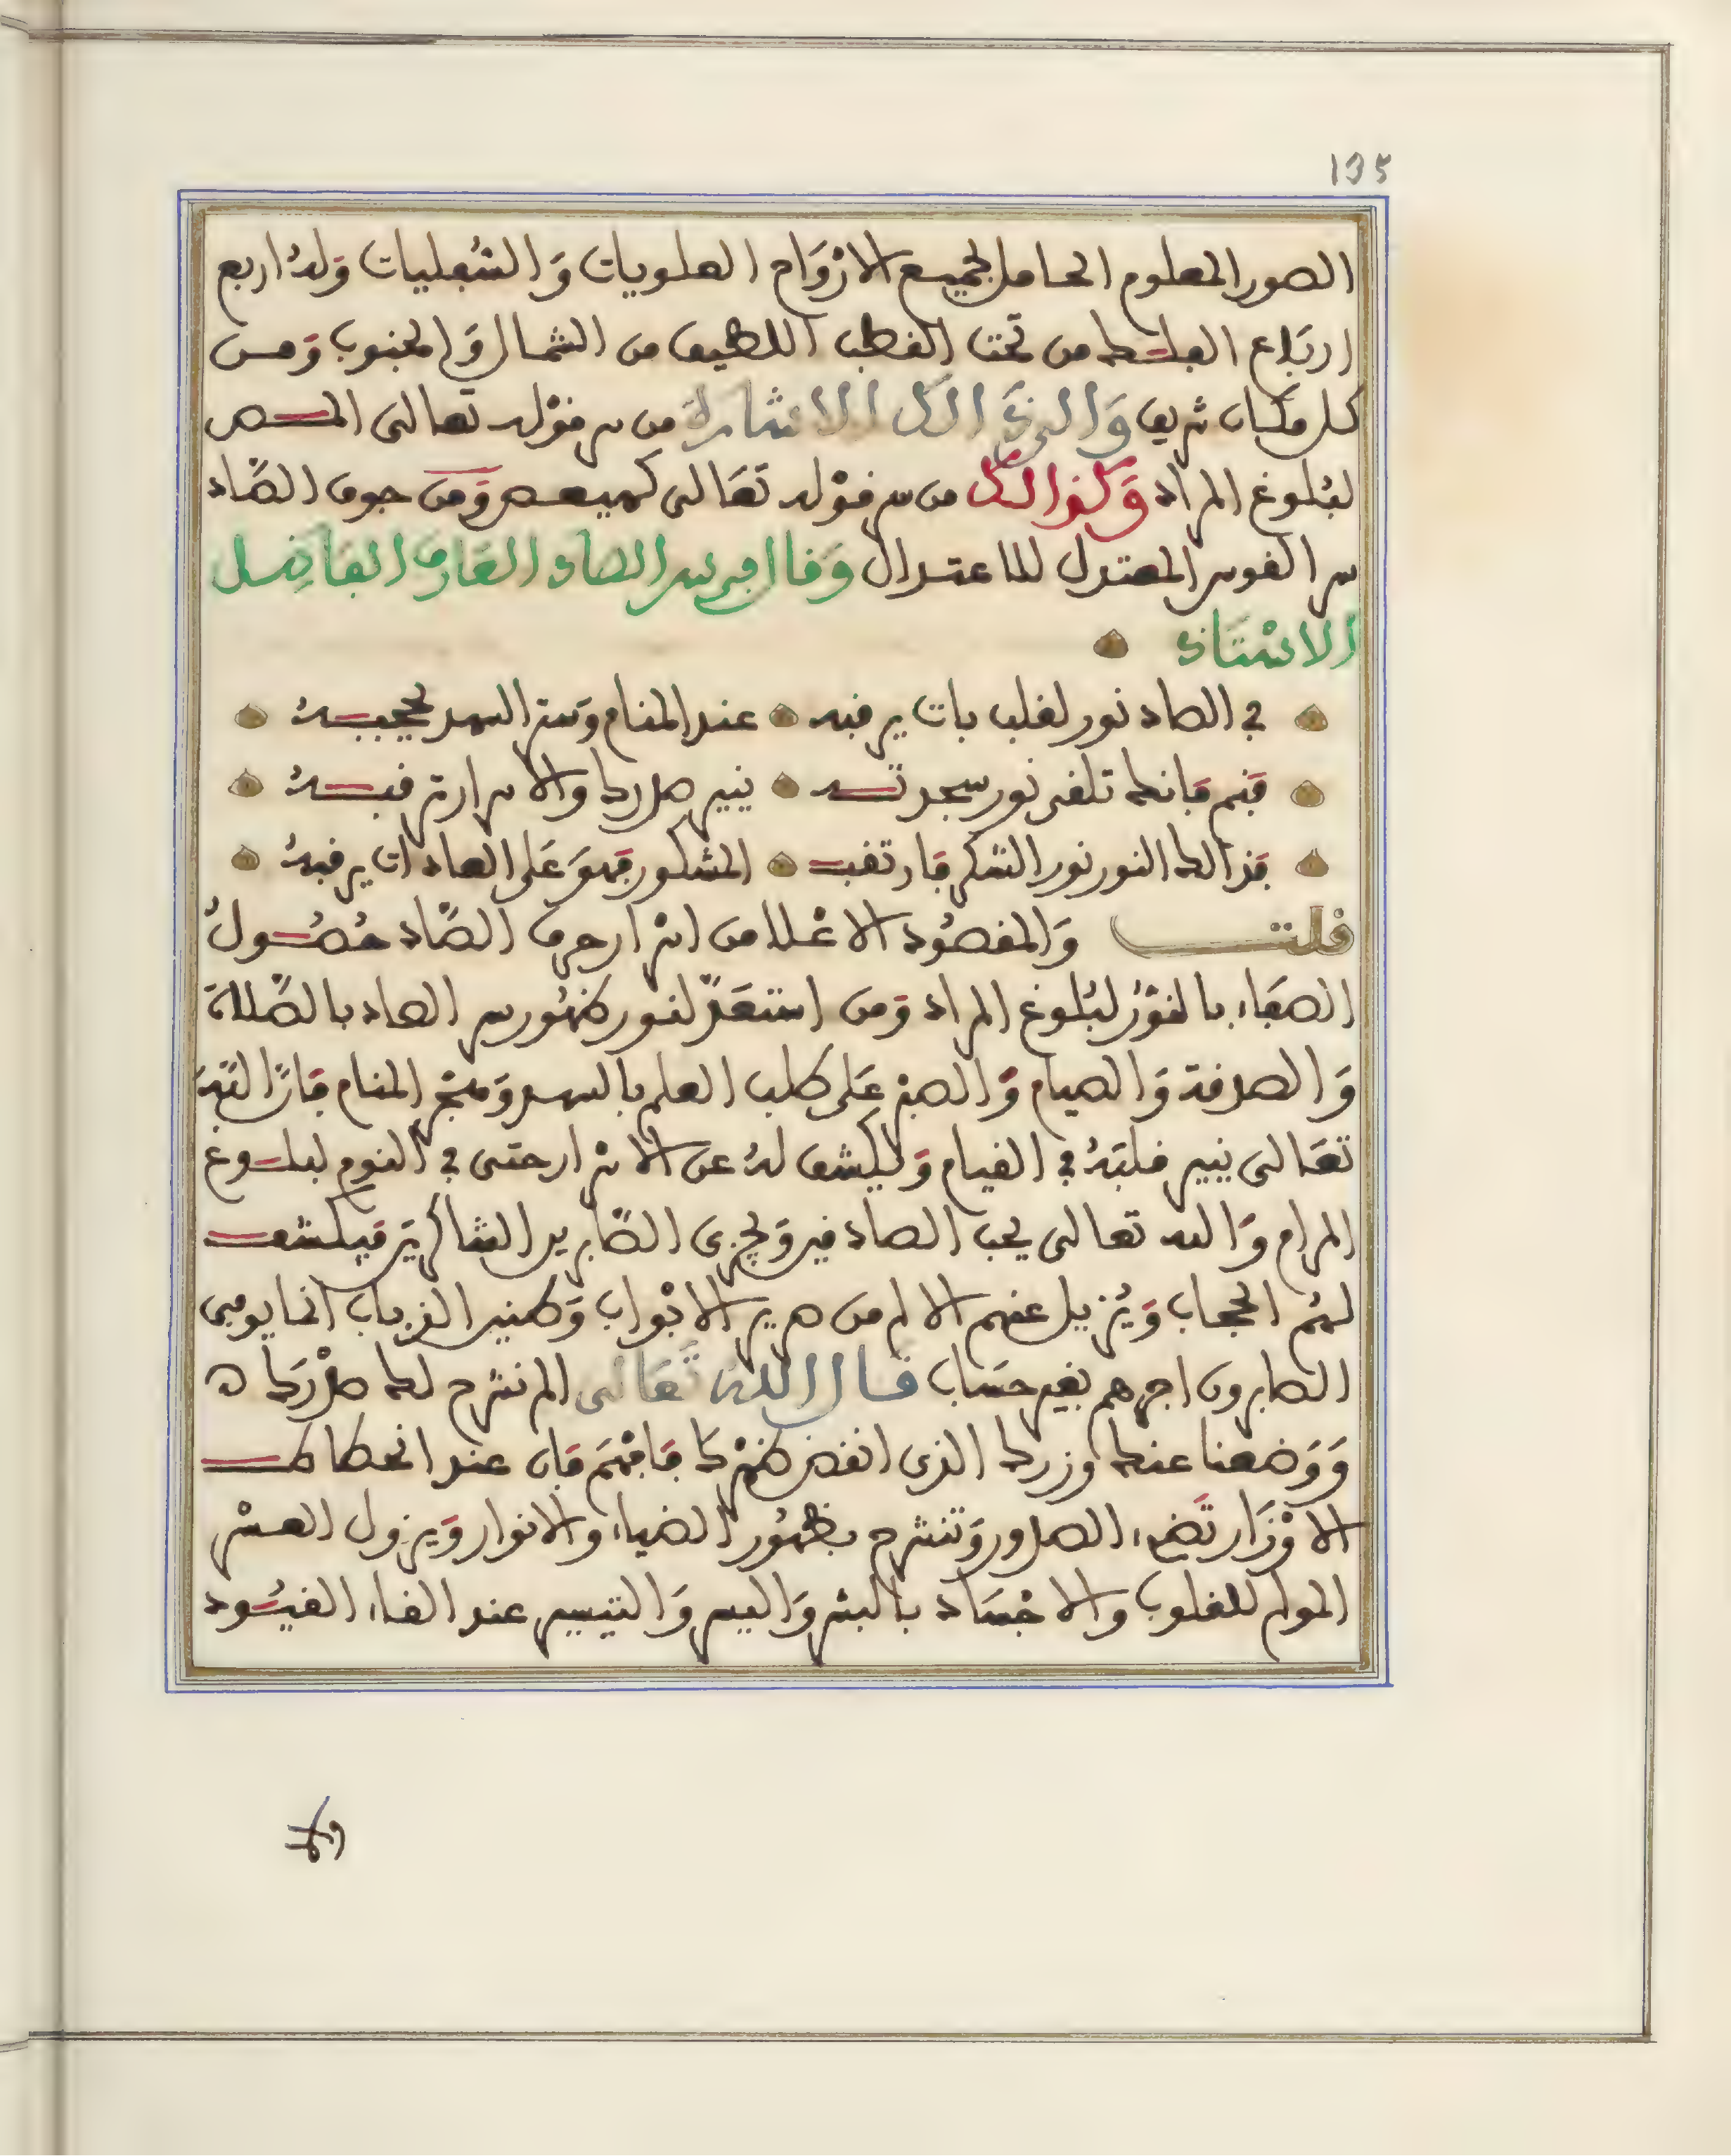 135
الصور المعلوم الحامل لجميع الارْوَاح العلويات وَالسُّفليات وَلهُ اربع
ارتَاع الفلك من تحت القطب اللطيف من الشمال وَالجنوب وَمن
كل مكان شريف وَالىَ ذالك الاشارة من سر قوْله تعالى المص
لبُلوغ المراد وَكذالك من سر قوْله تعَالى كهيعص وَمن حوف الصَّاد
سر القوس المعتدل للاعتدال وَقال في سر الصاد العَارف الفاضِل
الاسْتَاذ
في الصاد نور لقلب بات يرقبه عند المنام وَستر السهد يحجبهُ
فَنم فَانك تلقى نور سجدته ينير صدرك والاسرار ترقبهُ
فَذالك النور نور الشكر فَارتقب المشكور فَهوَ عَلى العادات يرقبهُ
قلت وَالمقصُود الاعْلا من اسْرار حرف الصَّاد حُصُولُ
الصفَاء بالفوْز لبُلوغ المراد وَمن استعَدّ لنور ظهُور سر الصاد بالصَّلاة
وَالصدقة وَالصيام وَالصبْر عَلى طلب العلم بالسهد وَهجْر المنام فَانَّ اللّه
تعَالى ينير قلبَهُ في القيام وَيكشف لهُ عن الاسْرار حتى في النوم لبلوغ
المرام وَالله تعالى يحب الصادقين وَيجزى الصَّابرين الشاكرين فيكشف
لهُم الحجاب وَيُزيل عنهم الالم من صرير الابْوَاب وَطنين الذباب انما يوفى
الصابرون اجرهم بغير حسَاب قال اللهُ تَعَالى الم نشرح لك صدْرَك ه
وَوَضعنا عنك وزرك الذى انقض ظهْرَك فَافهَم فَان عند انحطاط
الاوْزَار تَضىء الصدور وَتنشرح بظهُور الضياء والانوار وَيزول العسْر
المولم للقلوب والاجْسَاد بالبشر وَاليسر وَالتيسير عند القاء القيُود
ولا